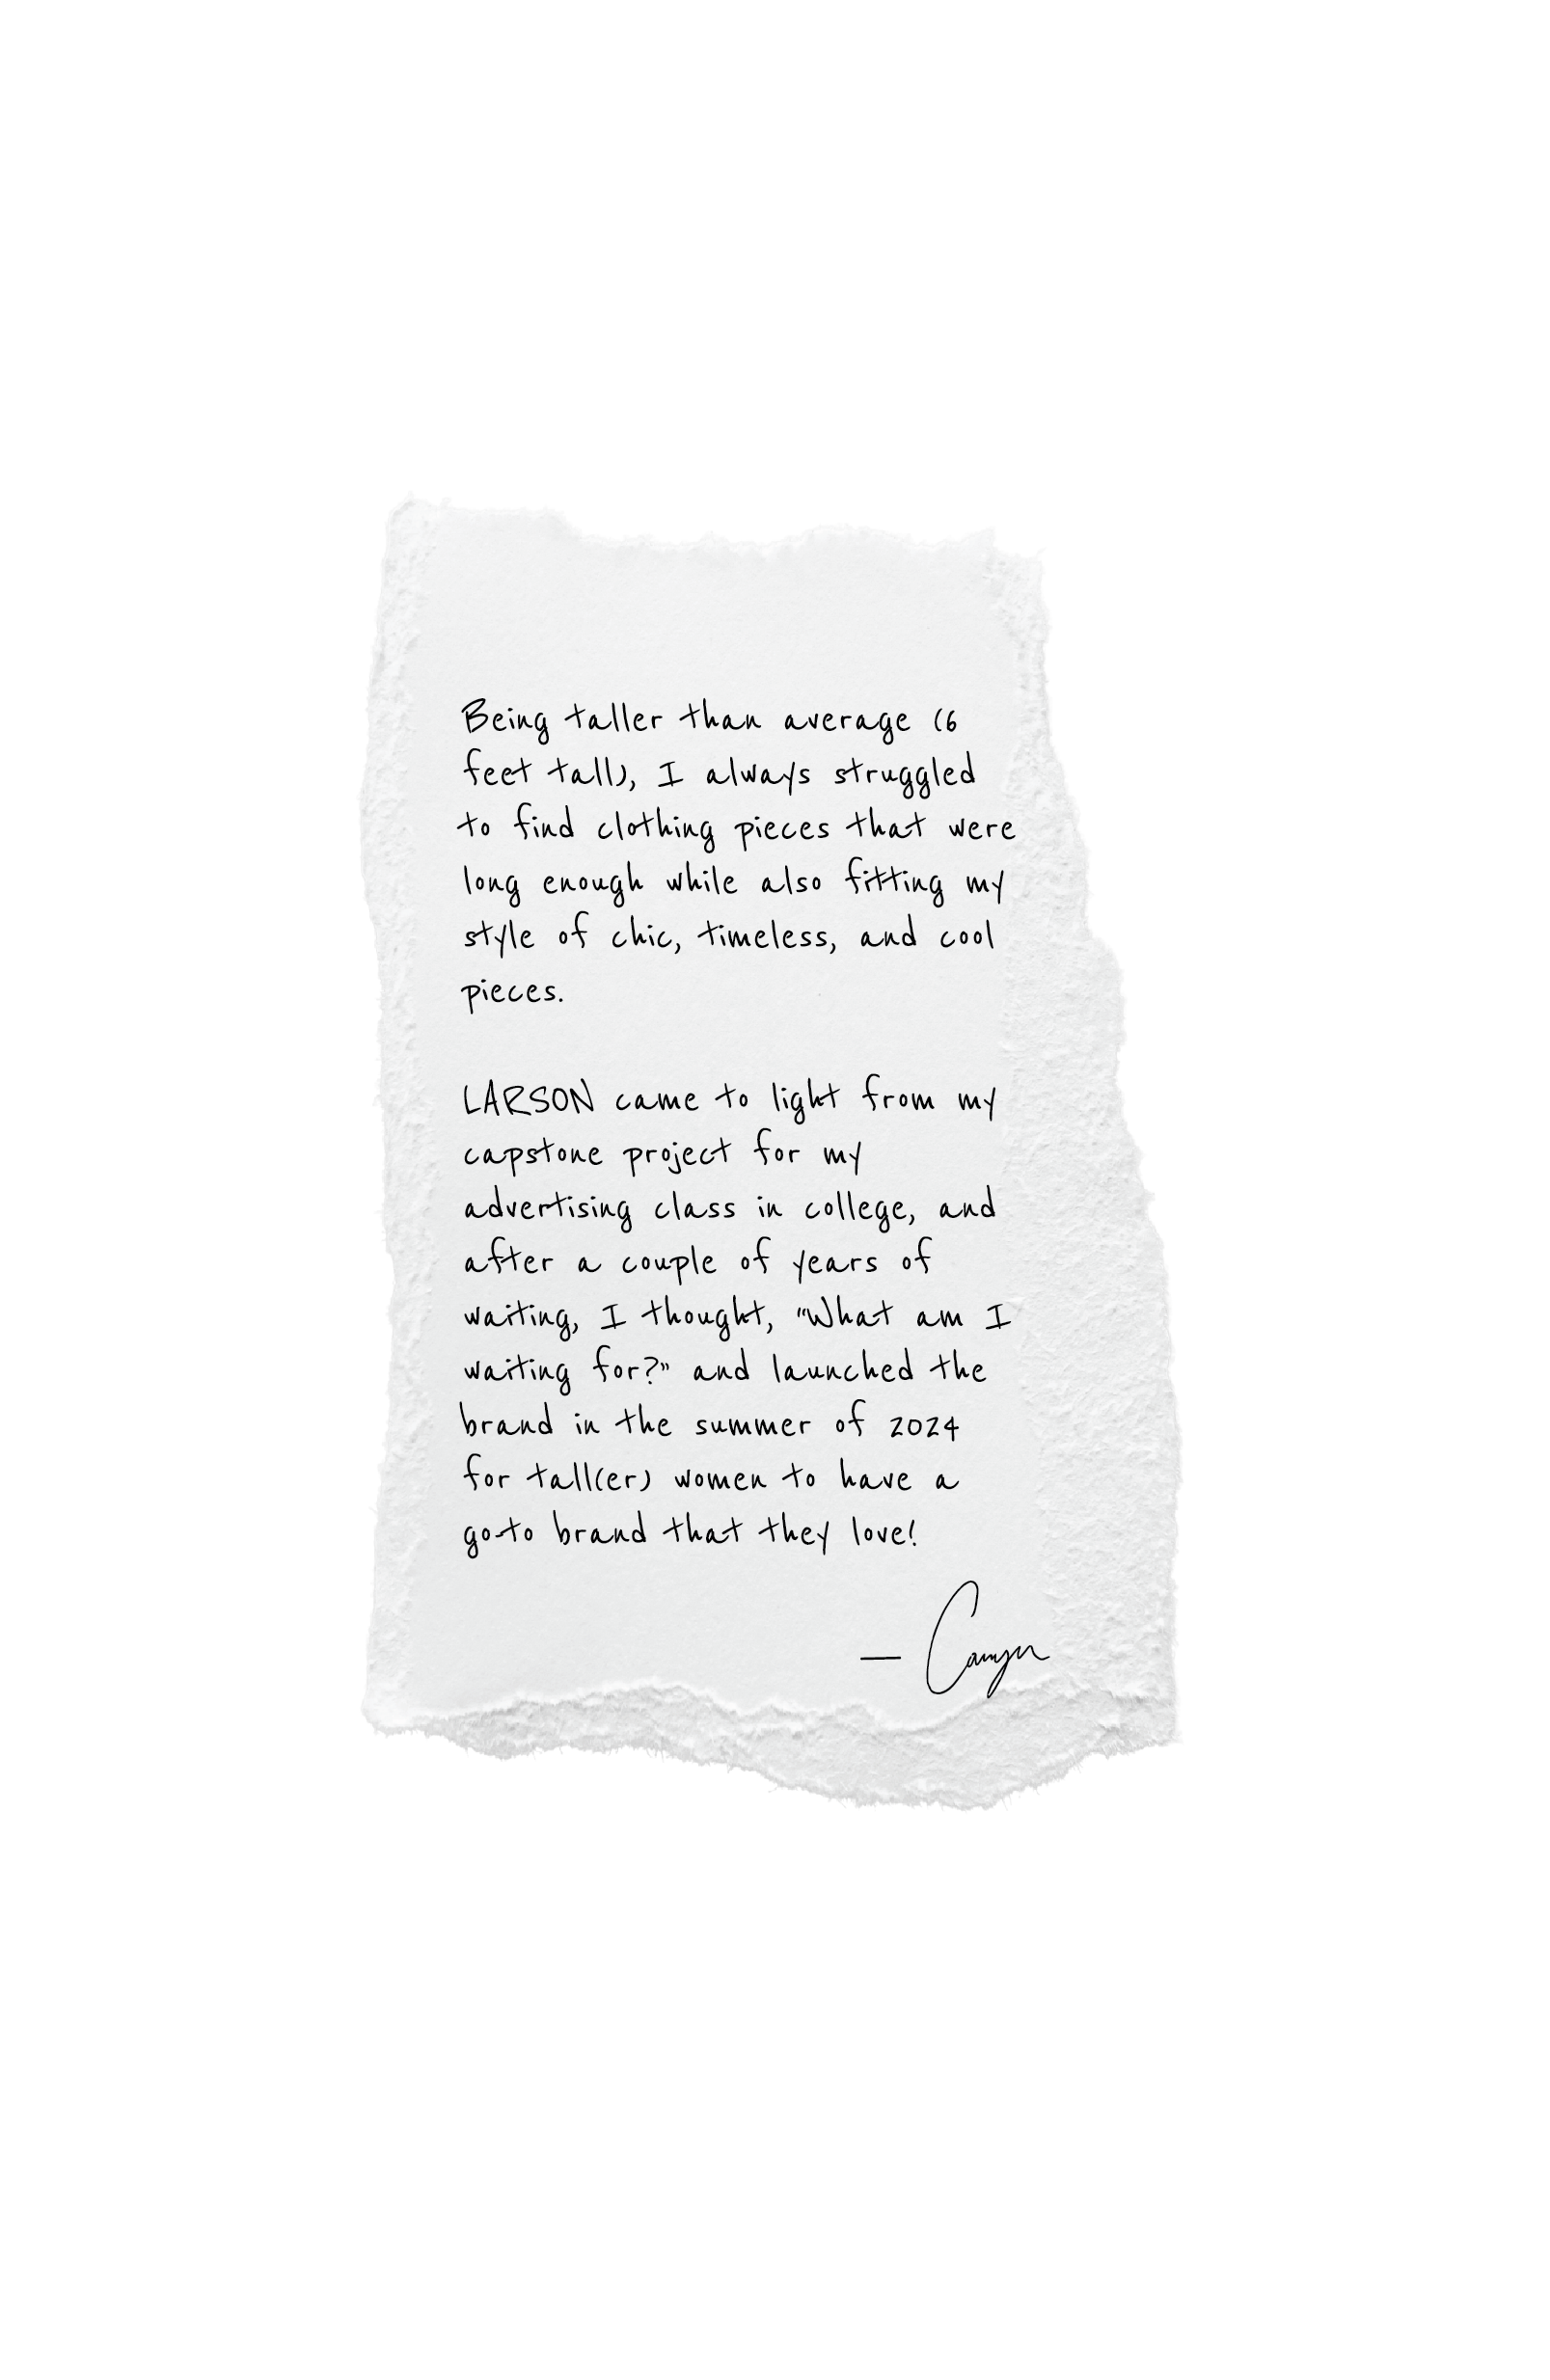 Being taller than average (6
feet tall), I always struggled
to find clothing pieces that were
long enough while also fitting my
style of chic, timeless, and cool
pieces.
LARSON came to light from my
capstone project for my
advertising class in college, and
after a couple of years of
waiting, I thought, “What am I
waiting for?” and launched the
brand in the summer of 2024
for tall(er) women to have a
go-to brand that they love!
—